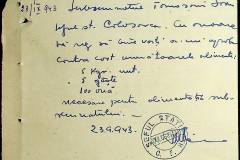 23/IX 943 Subsemnatul Tomsani Ioan
șef st. Colosova. Cu onoare
vă rog să bine voiți a-mi aproba
contra cost următoarele alimente:
5 Kgr. unt.
5 găște
100 ouă
necesare pentru alimentația sub-
semnatului.
23.9.943.
ȘEFUL STAȚ
C. F.